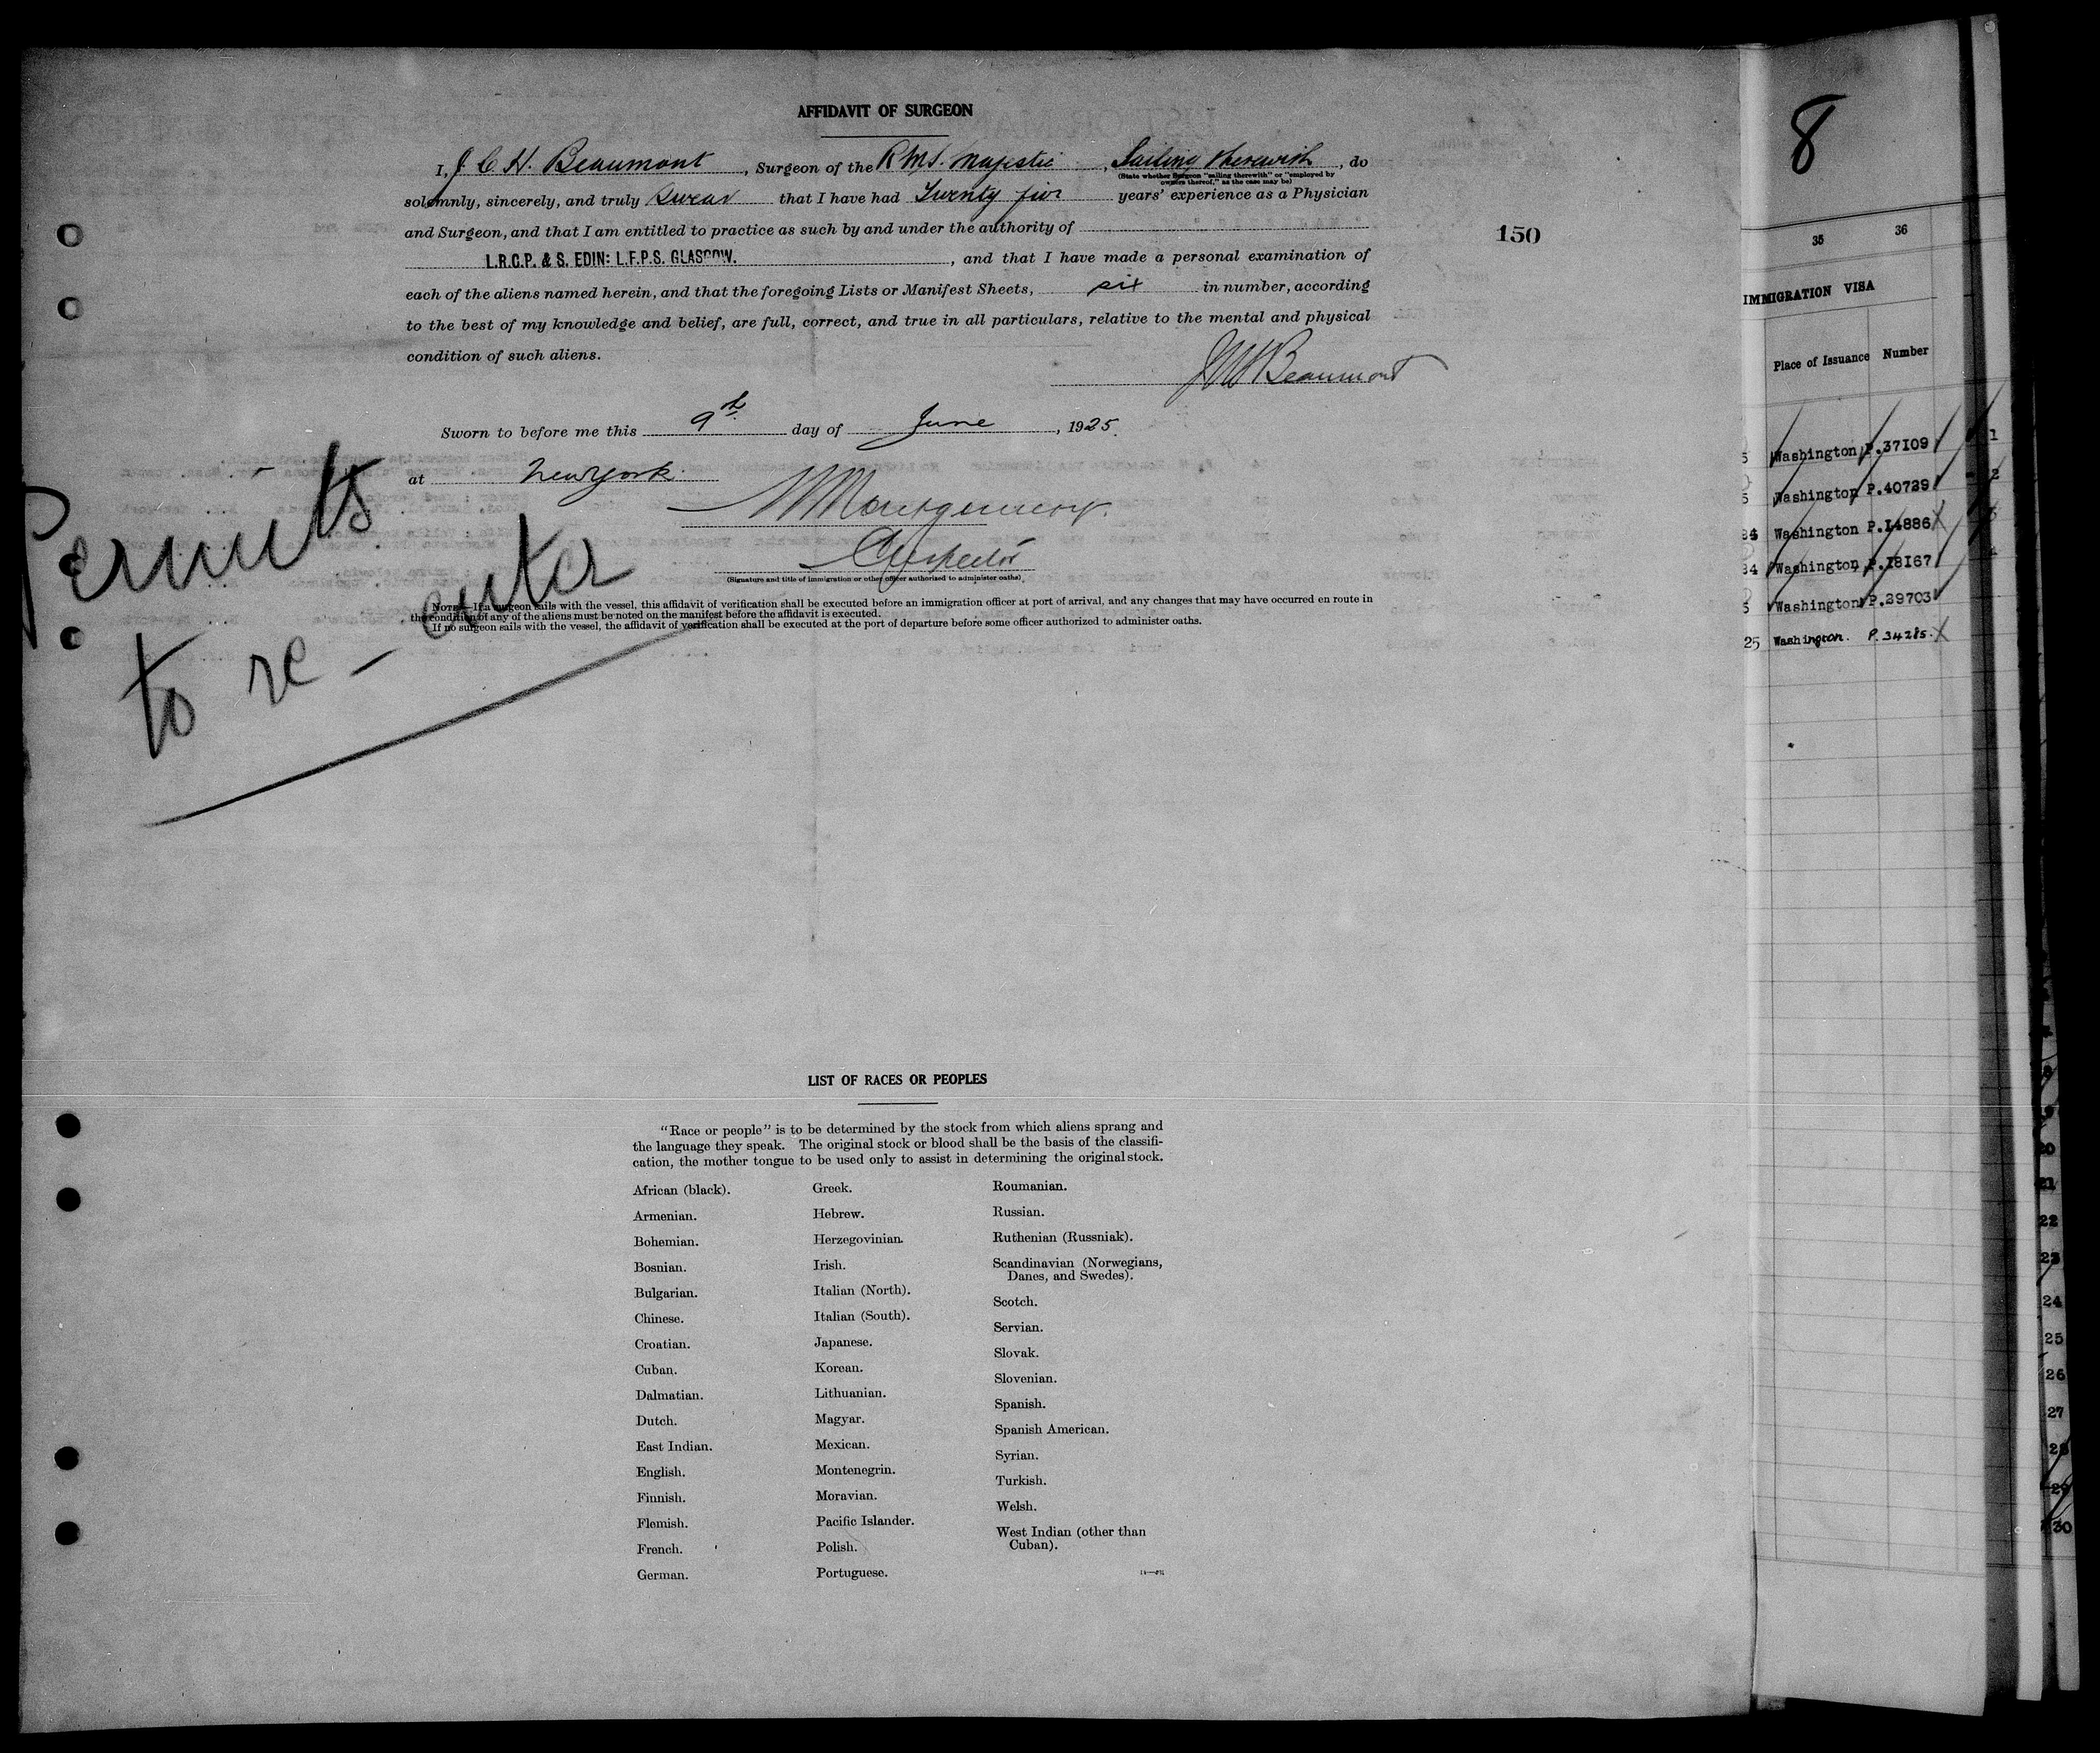 AFFIDAVIT OF SURGEON
I, J. C. H. Beaumont, Surgeon of the R.M.S. Majestic, Sailing therewith, do
(State whether Surgeon "sailing therewith" or "employed by
owners thereof," as the case may be)
solemnly, sincerely, and truly swear that I have had Twenty five years' experience as a Physician
and Surgeon, and that I am entitled to practice as such by and under the authority of
L.R.C.P. & S. EDIN: L.F.P.S. GLASGOW. , and that I have made a personal examination of
each of the aliens named herein, and that the foregoing Lists or Manifest Sheets, six in number, according
to the best of my knowledge and belief, are full, correct, and true in all particulars, relative to the mental and physical
condition of such aliens.
Beaumont
Sworn to before me this 9th day of June, 1925.
at New York.
Montgomery.
Inspector
(Signature and title of immigration or other officer authorized to administer oaths).
NOTE.—If a surgeon sails with the vessel, this affidavit of verification shall be executed before an immigration officer at port of arrival, and any changes that may have occurred en route in
the condition of any of the aliens must be noted on the manifest before the affidavit is executed.
If no surgeon sails with the vessel, the affidavit of verification shall be executed at the port of departure before some officer authorized to administer oaths.
Permits
to re-enter
150
LIST OF RACES OR PEOPLES
"Race or people" is to be determined by the stock from which aliens sprang and
the language they speak. The original stock or blood shall be the basis of the classifi-
cation, the mother tongue to be used only to assist in determining the original stock.
African (black).
Armenian.
Bohemian.
Bosnian.
Bulgarian.
Chinese.
Croatian.
Cuban.
Dalmatian.
Dutch.
East Indian.
English.
Finnish.
Flemish.
French.
German.
Greek.
Hebrew.
Herzegovinian.
Irish.
Italian (North).
Italian (South).
Japanese.
Korean.
Lithuanian.
Magyar.
Mexican.
Montenegrin.
Moravian.
Pacific Islander.
Polish.
Portuguese.
Roumanian.
Russian.
Ruthenian (Russniak).
Scandinavian (Norwegians,
Danes, and Swedes).
Scotch.
Servian.
Slovak.
Slovenian.
Spanish.
Spanish American.
Syrian.
Turkish.
Welsh.
West Indian (other than
Cuban).
8
35 36
IMMIGRATION VISA
Place of Issuance Number
5 Washington P.37109 1
5 Washington P.40729 2
24 Washington P.14886
24 Washington P.18167
5 Washington P.29703
25 Washington. P.34285.
20
21
22
23
24
25
26
27
28
29
30